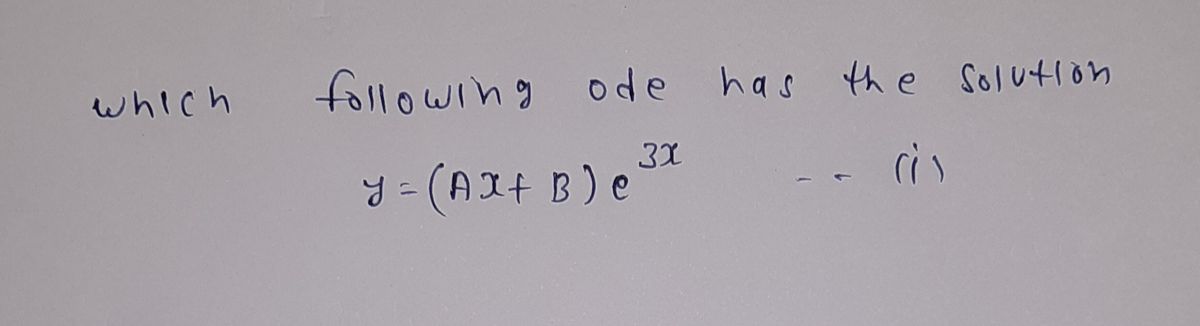 which following ode has the solution
y = (Ax + B) e^{3x} -- (i)